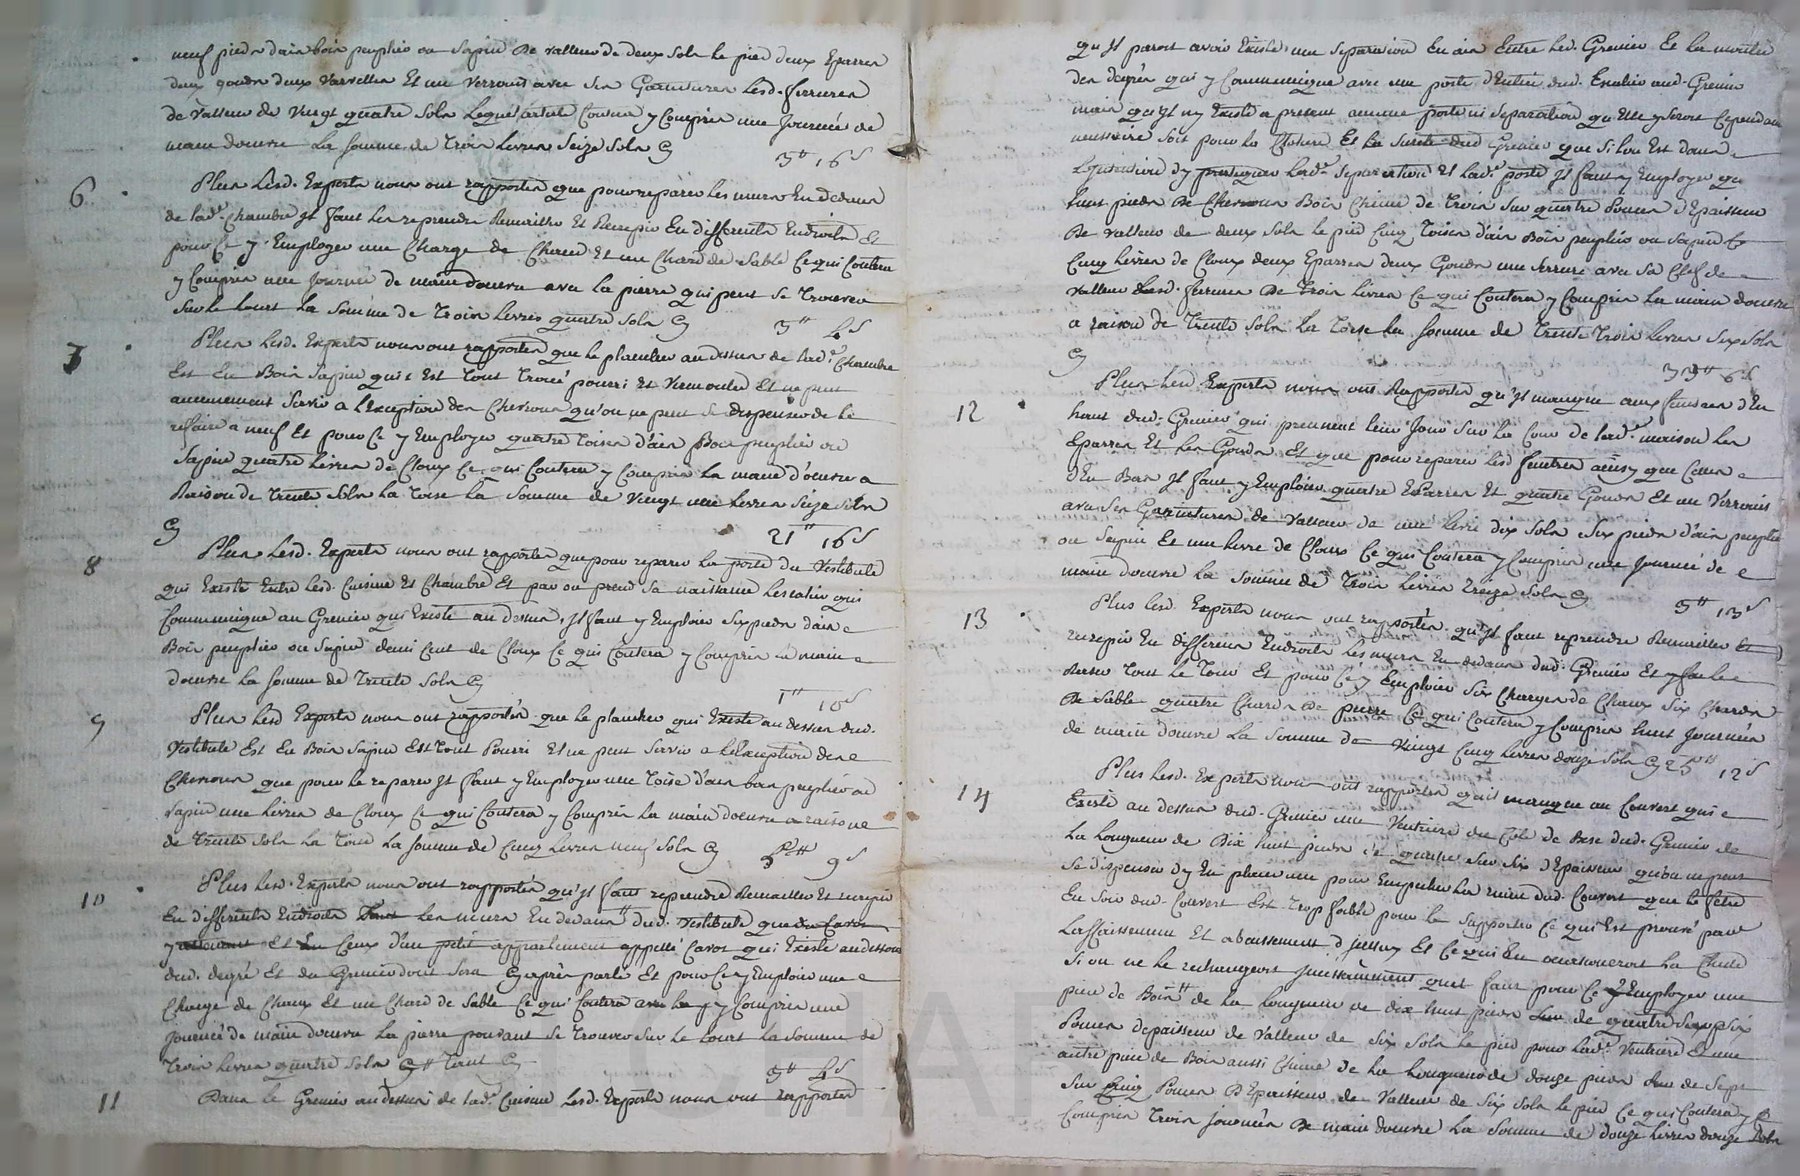 neuf pieds d'ais bois peuplier ou sapin de valleur de deux sols le pied deux Eparres
deux gonds deux varvelles Et un verrouil avec ses Garnitures lesd. ferrures
de valleur de vingt quatre sols Lequel article Coutera y Compris une Journée de
main doeuvre La somme de Trois Livres Seize sols Cy
3 tt 16 s
6 . Plus Lesd. Experts nous ont rapportés que pour reparer les murs En dedans
de lad.e Chambre Jl faut les reprendre Remailler Et Recrepir En differents Endroits Et
pour Ce y Employer une Charge de Chaux Et un Chard de Sable Ce qui Coutera
y Compris une journée de main doeuvre avec la pierre qui peut se Trouver
sur le Lourt la Somme de Trois Livres quatre sols Cy
3 tt 4 s
7 . Plus Lesd. Experts nous ont rapportés que le plancher au dessus de lad.e Chambre
Est En Bois Sapin qui Est Tout Troué pourri Et Vermoulu Et ne peut
aucunement Servir a l'Exception des Chevrons qu'on ne peut se dispenser de le
refaire a neuf Et pour Ce y Employer quatre Toises d'ais Bois peuplier ou
Sapin quatre Livres de Cloux Ce qui Coutera y Compris La main d'oeuvre a
Raison de Trente sols la Toise la Somme de Vingt une Livres Seize sols
Cy
21 tt 16 s
8 Plus Lesd. Experts nous ont rapportés que pour reparer la porte du Vestibule
qui Existe Entre Lesd. Cuisine Et Chambre Et par ou prend sa naissance Lescalier qui
Communique au Grenier qui Existe au dessus, Jl faut y Employer six pieds dais
Bois peuplier ou Sapin demi Cent de Cloux Ce qui Coutera y Compris la main
doeuvre La somme de Trente sols Cy
1 tt 10 s
9 Plus Lesd Experts nous ont rapportés que le plancher qui Existe au dessus dud.
Vestibule Est En Bois sapin Est Tout Pourri Et ne peut Servir a L'Exception des
Chevrons que pour le reparer Jl faut y Employer une Toise d'ais bois peuplier ou
sapin une Livre de Cloux Ce qui Coutera y Compris La main doeuvre a raison
de Trente sols La Toise La somme de Cinq Livres neuf sols Cy
5 tt 9 s
10 . Plus Lesd. Experts nous ont rapportés qu'Jl faut reprendre Remailler Et recrepir
En differents Endroits les murs En dedans dud. Vestibule
Et Ceux d'un petit appartement appellé Cavot qui Existe au dessous
dud. degré Et du Grenier dont sera Cy après parlé Et pour Ce y Employer une
Charge de Chaux Et un Chard de Sable Ce qui Coutera y Compris une
journée de main doeuvre La pierre pouvant se Trouver sur le Lourt la somme de
Trois Livres quatre sols Cy
3 tt 4 s
11 Dans le Grenier au dessus de lad.e Cuisine Lesd. Experts nous ont rapportés
qu'Jl paroit avoir Existé une Separation En ais Entre led. Grenier Et la montée
des degrés qui y Communique avec une porte d'Entrée dud. Escalier aud. Grenier
mais qu'Jl ny Existe a present aucune porte ni Separation qu'Elle y seroit Cependant
necessaire soit pour la Cloture Et la Sureté dud Grenier que si lon Est dans
Lintention dy pratiquer lad.e Separation Et lad.e porte Jl faut y Employer
huit pieds de Chevrons Bois Chêne de Trois sur quatre Pouces d'Epaisseur
de valleur de deux sols le pied Cinq Toises d'ais Bois peuplier ou sapin
Cinq Livres de Cloux deux Eparres deux Gonds une serrure avec sa Clef de
valleur Lesd. ferrures de Trois Livres Ce qui Coutera y Compris La main doeuvre
a raison de Trente sols La Toise La somme de Trente Trois Livres six sols
Cy
33 tt 6 s
12 . Plus Lesd Experts nous ont Rapportés qu'Jl manque aux fenetres d'En
haut dud. Grenier qui prennent leur Jour sur la Cour de lad.e maison les
Eparres Et les Gonds Et que pour reparer lesd fenetres ainsy que Celles
d'En Bas Jl faut y Employer quatre Eparres Et quatre Gonds Et un Verrouil
avec ses Garnitures de valleur de une Livre dix sols six pieds d'ais peuplier
ou Sapin Et une livre de Cloux Ce qui Coutera y Compris une Journée de
main doeuvre La Somme de Trois Livres Treize Sols Cy
3 tt 13 s
13 . Plus lesd. Experts nous ont rapportés qu'Jl faut reprendre Remailler Et
recrepir En differens Endroits les murs En dedans dud. Grenier Et
Tout le Tour Et pour Ce y Employer Six Charges de Chaux Six Chards
de Sable quatre Chards de pierre Ce qui Coutera y Compris huit Journées
de main doeuvre La Somme de Vingt Cinq Livres douze sols Cy 25 tt 12 s
14 Plus Lesd. Experts nous ont rapportés qu'il manque au Couvert qui
Existe au dessus dud. Grenier une Ventriere du Coté de Bise dud. Grenier de
La Longueur de Dix huit pieds de quatre sur six d'Epaisseur qu'on ne peut
se dispenser dy En placer une pour Empecher la ruine dud. Couvert que le
dud. Couvert Est trop foible pour le Supporter Ce qui Est prouvé par
Laffaissement Et abaissement d'jcelluy Et Ce qui En occasioneroit La Chute
si on ne le rechangeoit jncessamment quil faut pour Ce y Employer une
piece de Bois de la Longueur de dix huit pieds de quatre sur six
Pouces depaisseur de Valleur de six sols le pied pour lad.e Ventriere Et une
autre piece de Bois aussi Chêne de la Longueur de douze pieds de sept
sur Cinq Pouces d'Epaisseur de Valleur de six sols le pied Ce qui Coutera y
Compris Trois journées de main doeuvre La Somme de douze Livres douze Sols